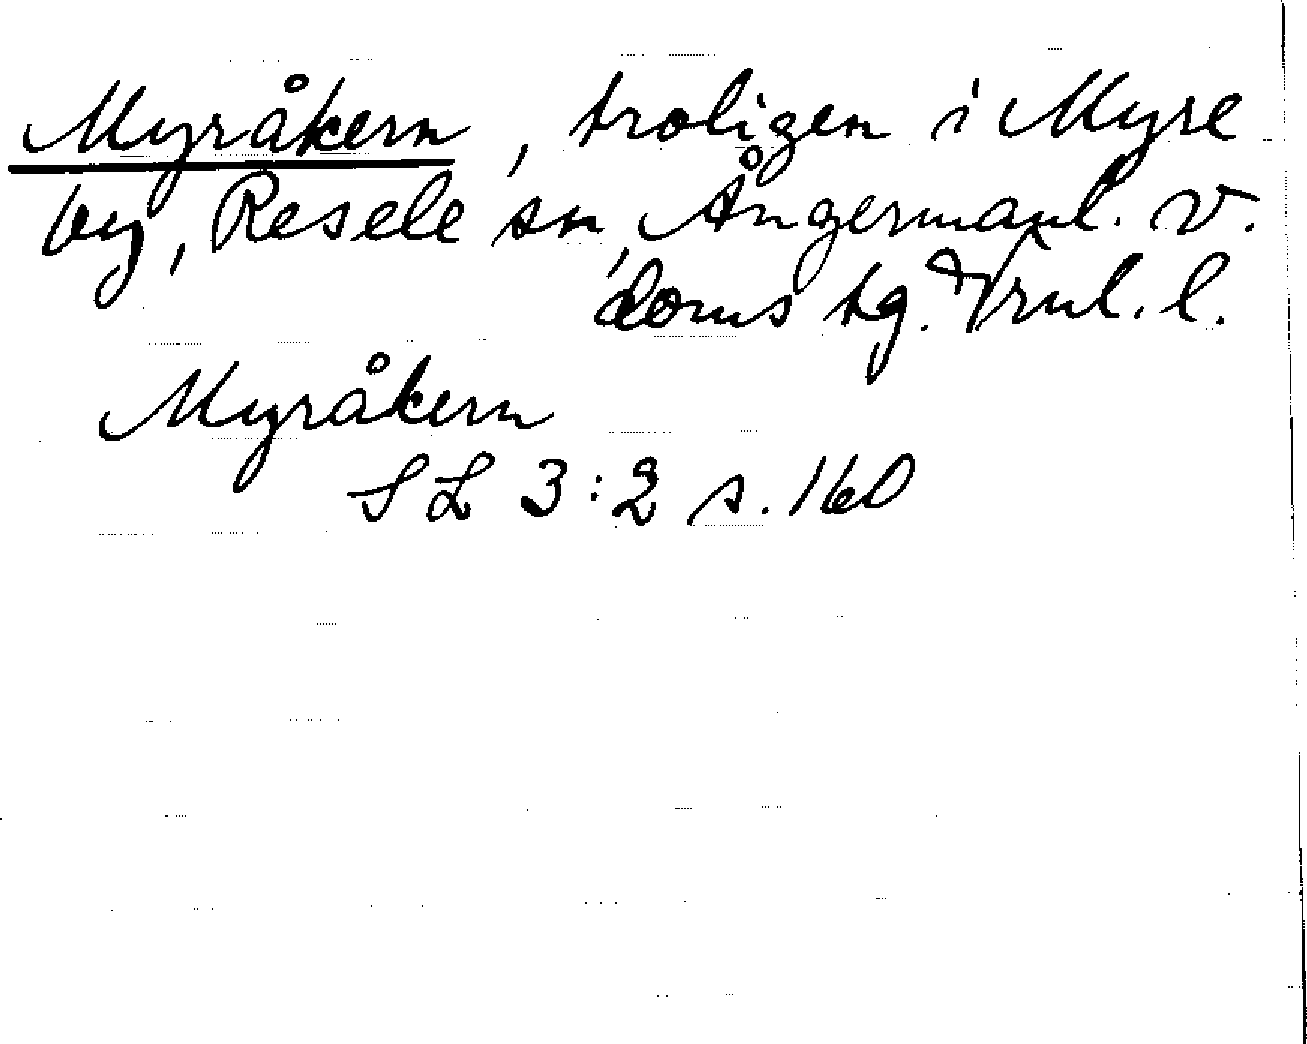 Myråkern, troligen i Myre
by, Resele sn, Ångermanl. v.
doms tg. Vrnl. l.
Myråkern
SL 3:2 s. 160